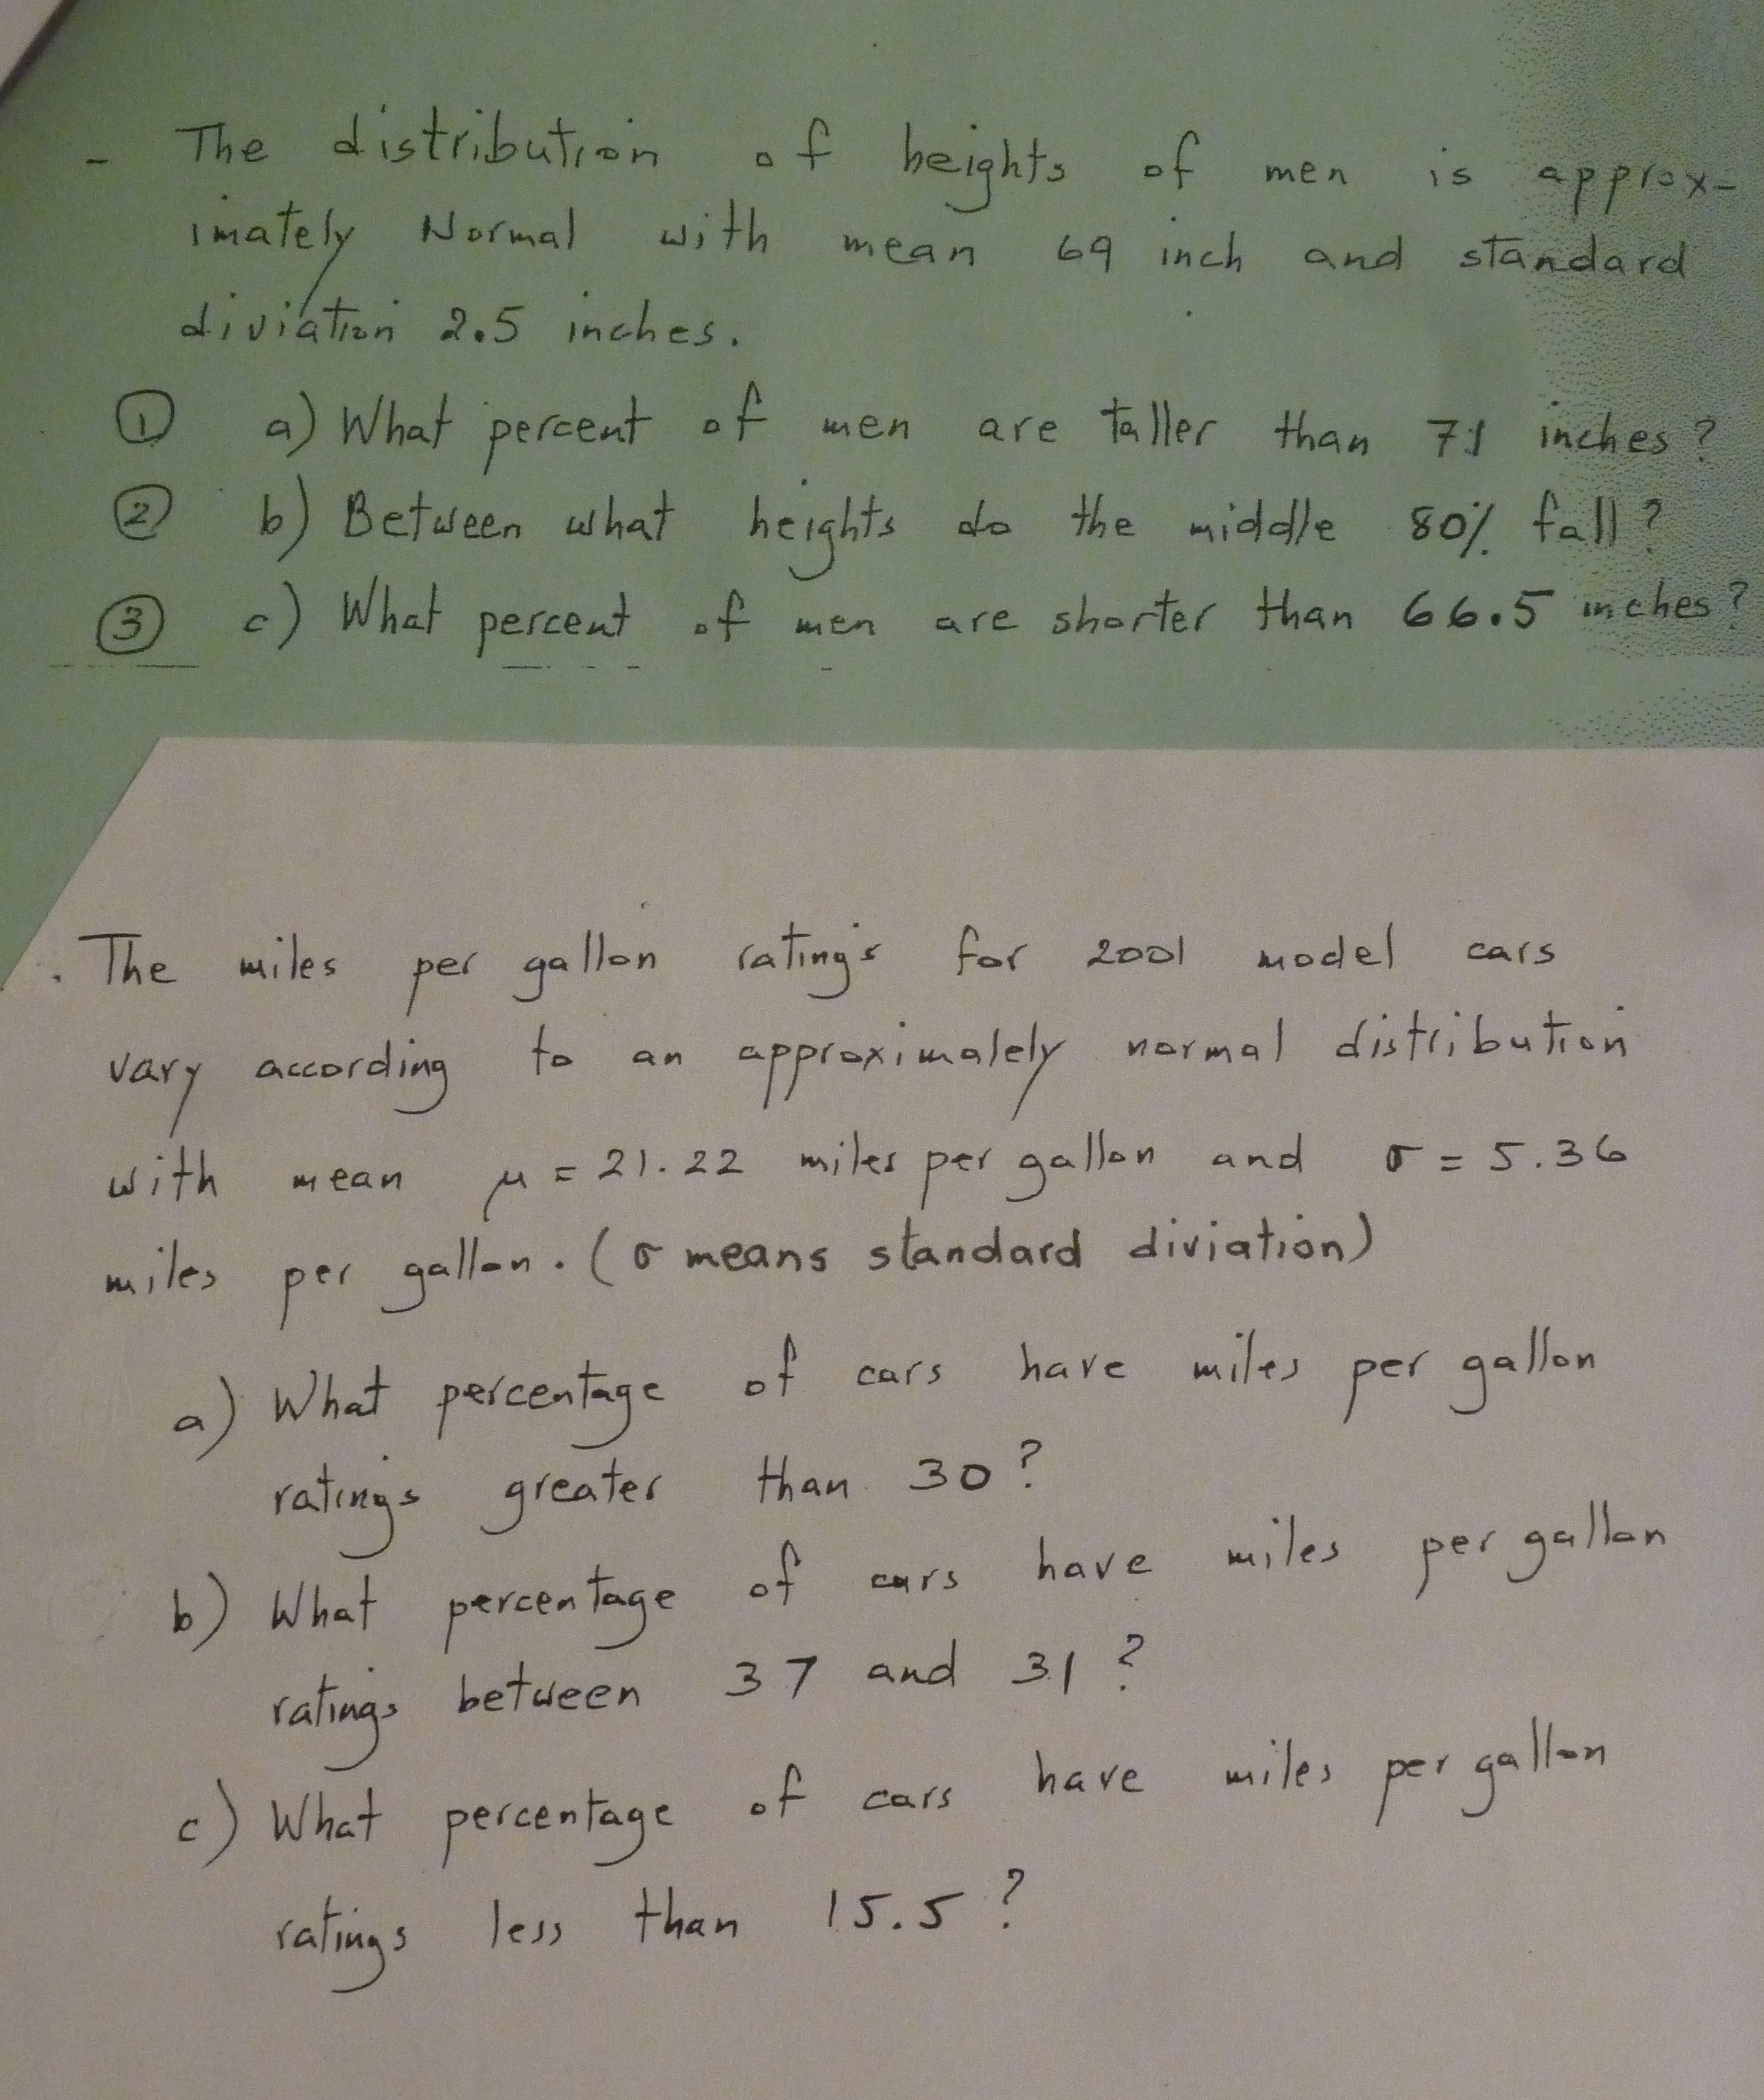 - The distribution of heights of men is approx-
imately Normal with mean 69 inch and standard
diviation 2.5 inches.
① a) What percent of men are taller than 71 inches?
② b) Between what heights do the middle 80% fall?
③ c) What percent of men are shorter than 66.5 inches?
. The miles per gallon ratings for 2001 model cars
vary according to an approximately normal distribution
with mean μ = 21.22 miles per gallon and σ = 5.36
miles per gallon. (σ means standard diviation)
a) What percentage of cars have miles per gallon
ratings greater than 30?
b) What percentage of cars have miles per gallon
ratings between 37 and 31?
c) What percentage of cars have miles per gallon
ratings less than 15.5?